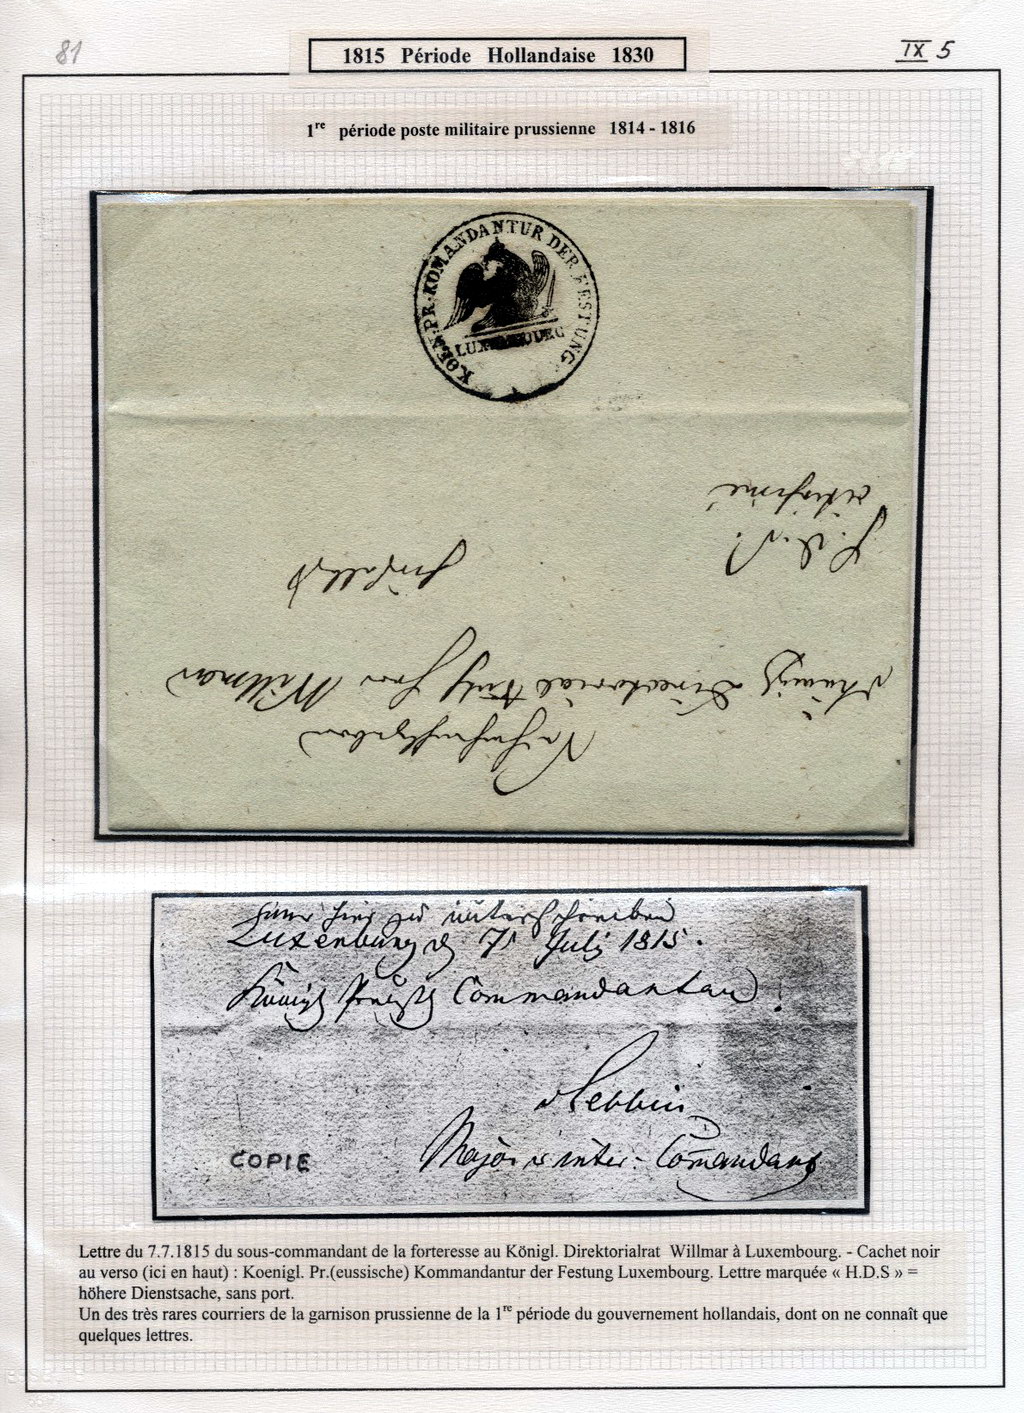 81
1815 Période Hollandaise 1830
IX 5
1re période poste militaire prussienne 1814 - 1816
KOEN. PR. KOMANDANTUR DER FESTUNG
LUXEMBOURG
Directorial Rath Herr Willmar
Luxenburg d 7t July 1815.
Königl Preuß Commandantur
Major u unter: Comandant
COPIE
Lettre du 7.7.1815 du sous-commandant de la forteresse au Königl. Direktorialrat Willmar à Luxembourg. - Cachet noir
au verso (ici en haut) : Koenigl. Pr.(eussische) Kommandantur der Festung Luxembourg. Lettre marquée « H.D.S » =
höhere Dienstsache, sans port.
Un des très rares courriers de la garnison prussienne de la 1re période du gouvernement hollandais, dont on ne connaît que
quelques lettres.